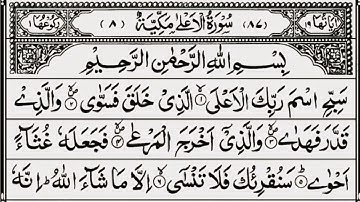 اٰیاتها ١٩ (٨٧) سُوْرَةُ الْاَعْلٰى مَكِّيَّةٌ (٨) رکوعها ١
بِسْمِ اللّٰهِ الرَّحْمٰنِ الرَّحِيْمِ
سَبِّحِ اسْمَ رَبِّكَ الْاَعْلَى ۙ‏ ١ الَّذِیْ خَلَقَ فَسَوّٰى ۙ‏ ٢ وَالَّذِیْ
قَدَّرَ فَهَدٰى ۙ‏ ٣ وَالَّذِیْۤ اَخْرَجَ الْمَرْعٰى ۙ‏ ٤ فَجَعَلَهٗ غُثَآءً
اَحْوٰى ؕ‏ ٥ سَنُقْرِئُكَ فَلَا تَنْسٰٓى ۙ‏ ٦ اِلَّا مَا شَآءَ اللّٰهُ ؕ اِنَّهٗ